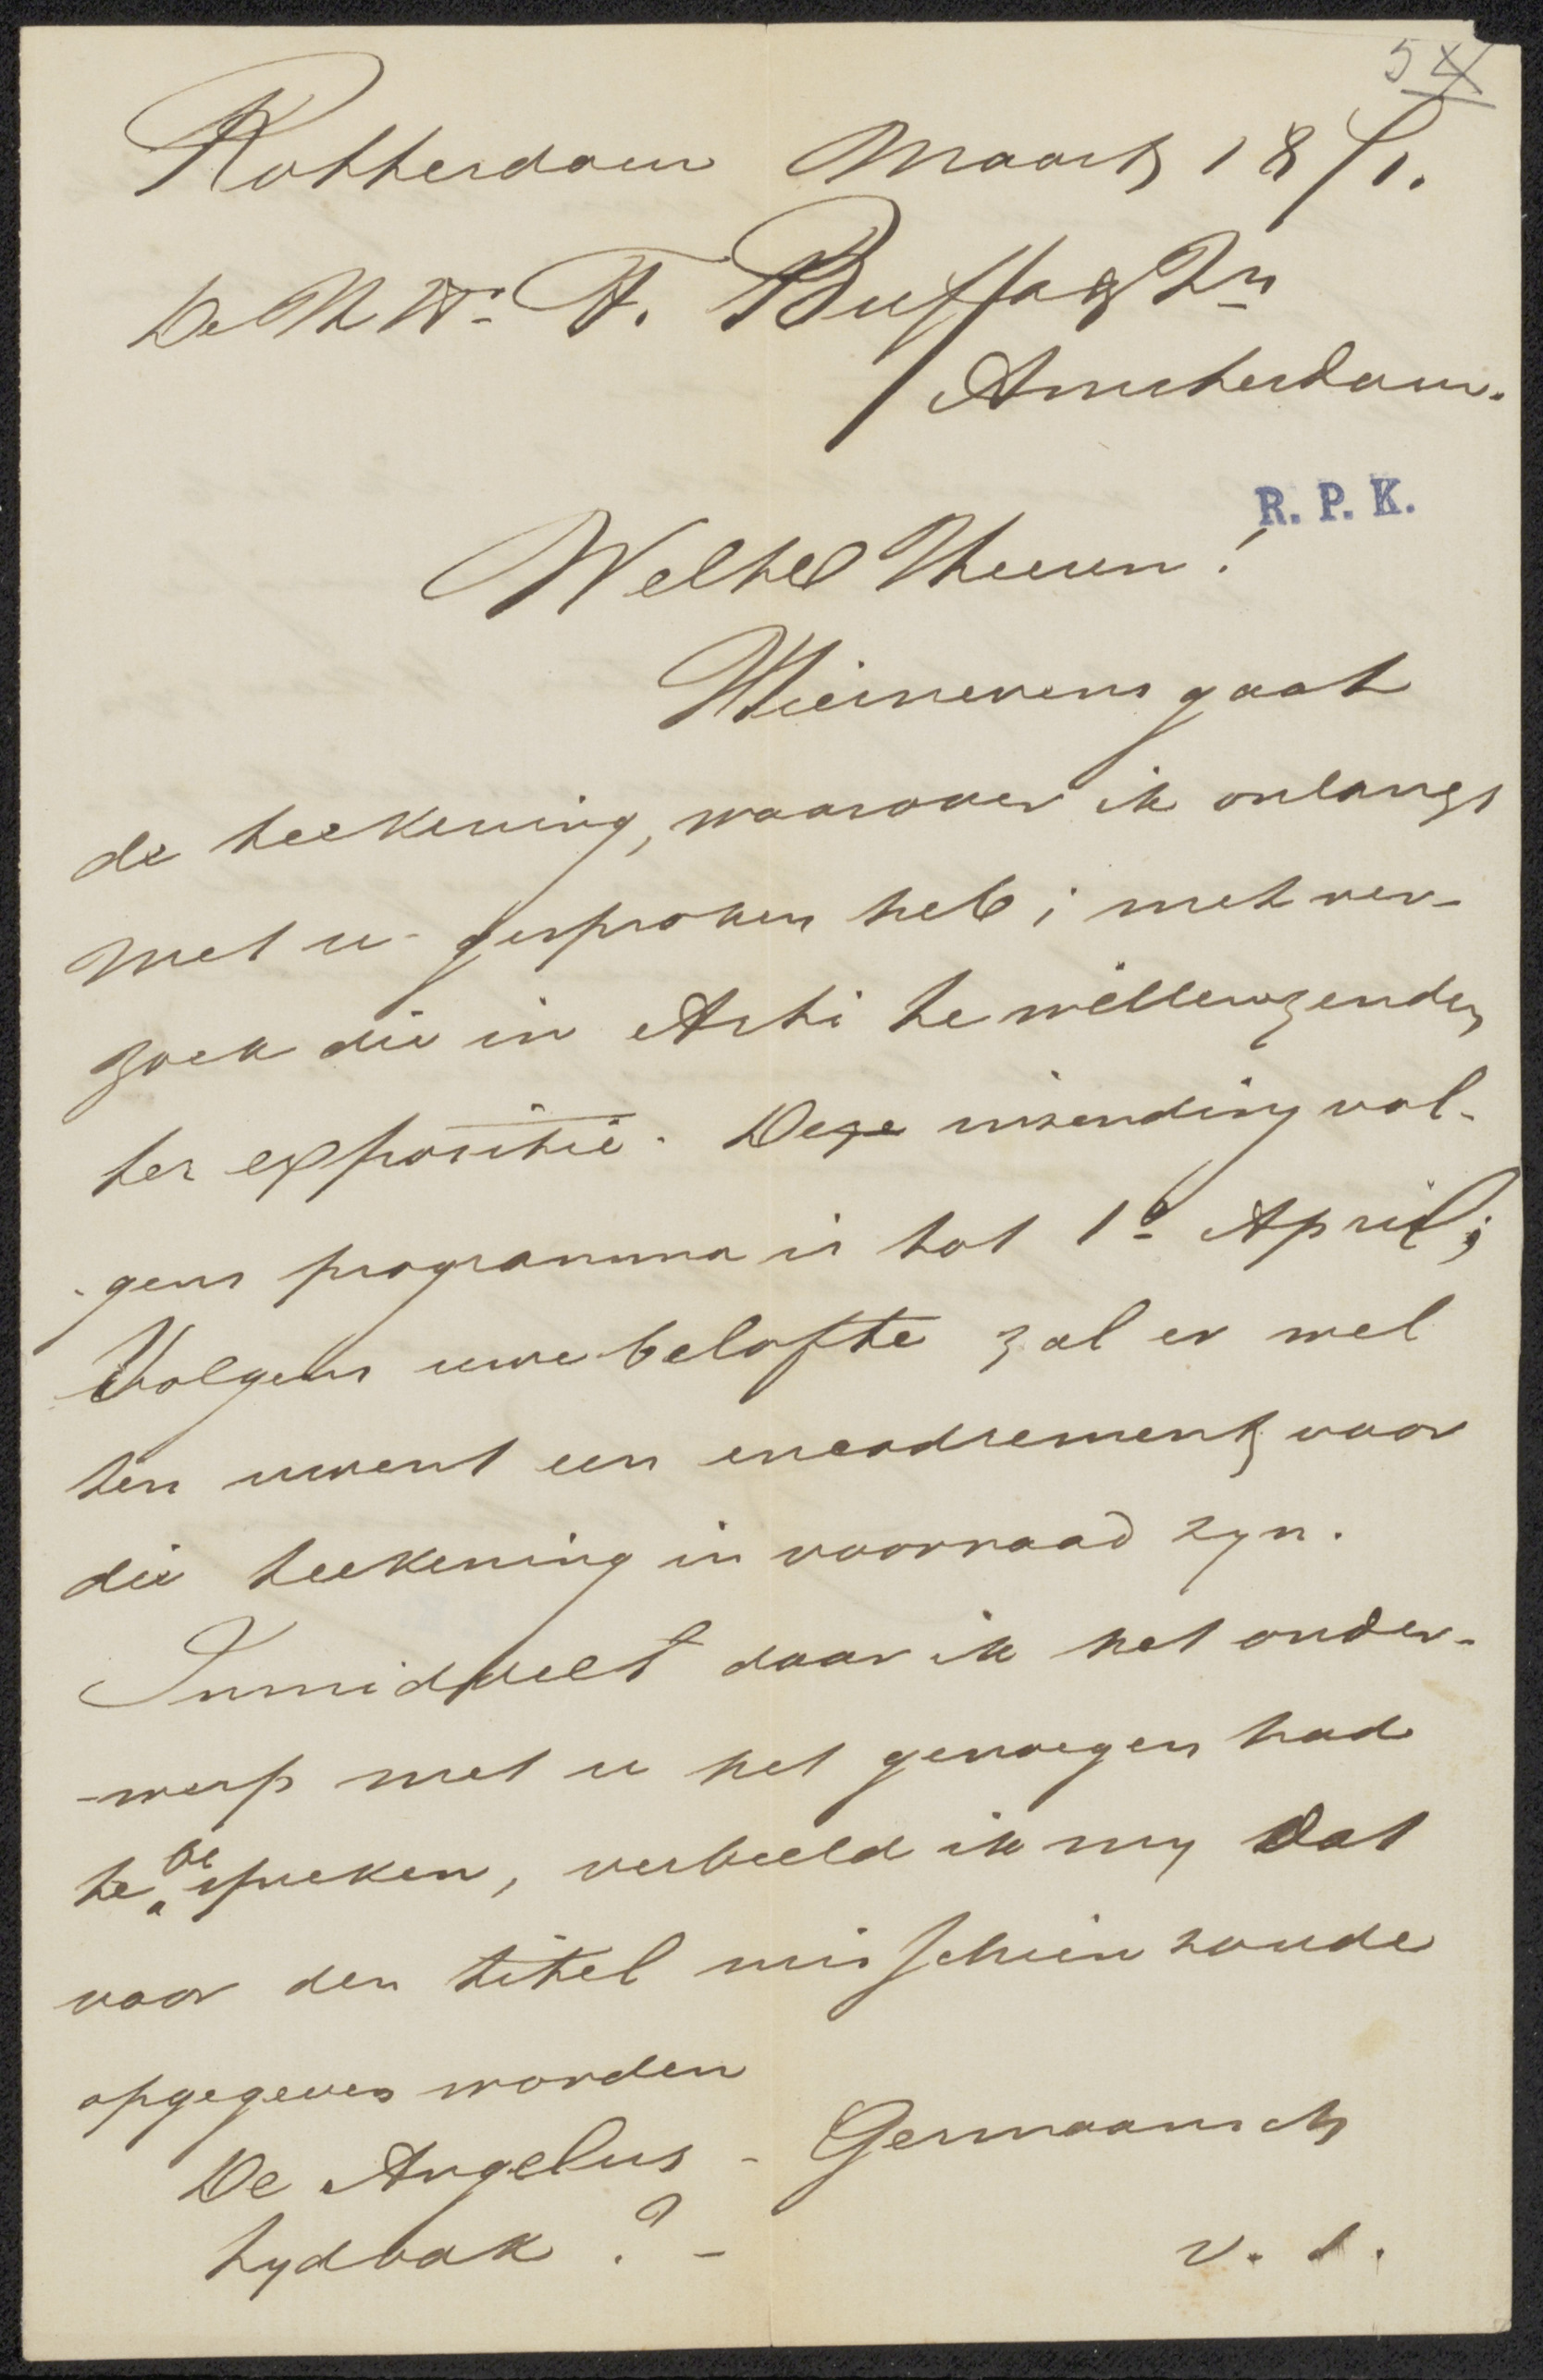 54
Rotterdam Maart 1891.
De HHrn. F. Buffa & Zn
Amsterdam.
R. P. K.
WelEd Heeren!
Hiernevens gaat
de teekening, waarover ik onlangs
met u gesproken heb; met ver-
zoek die in Arti te willen zenden
ter expositie. Deze inzending vol-
-gens programma is tot 1e April;
Volgens uwe belofte zal er wel
ten uwent een encadrement voor
die teekening in voorraad zyn.
Inmiddels daar ik het onder-
-werp met u het genoegen had
te bespreken, verbeeld ik my dat
voor den titel misschien zoude
opgegeven worden
De Angelus - Germaansch
tydvak ? -
v. d.